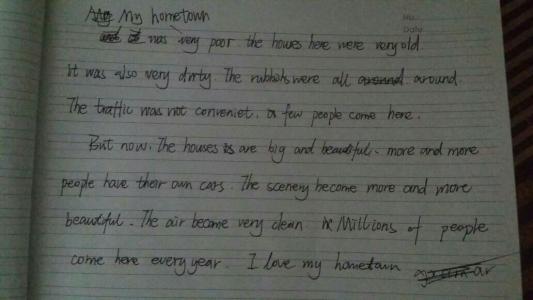 My hometown
was very poor. the houses here were very old.
It was also very dirty. The rubbish were all around.
The traffic was not conveniet. a few people come here.
But now. The houses are big and beautiful. more and more
people have their own cars. The scenery become more and more
beautiful. The air became very clean. Millions of people
come here every year. I love my hometown